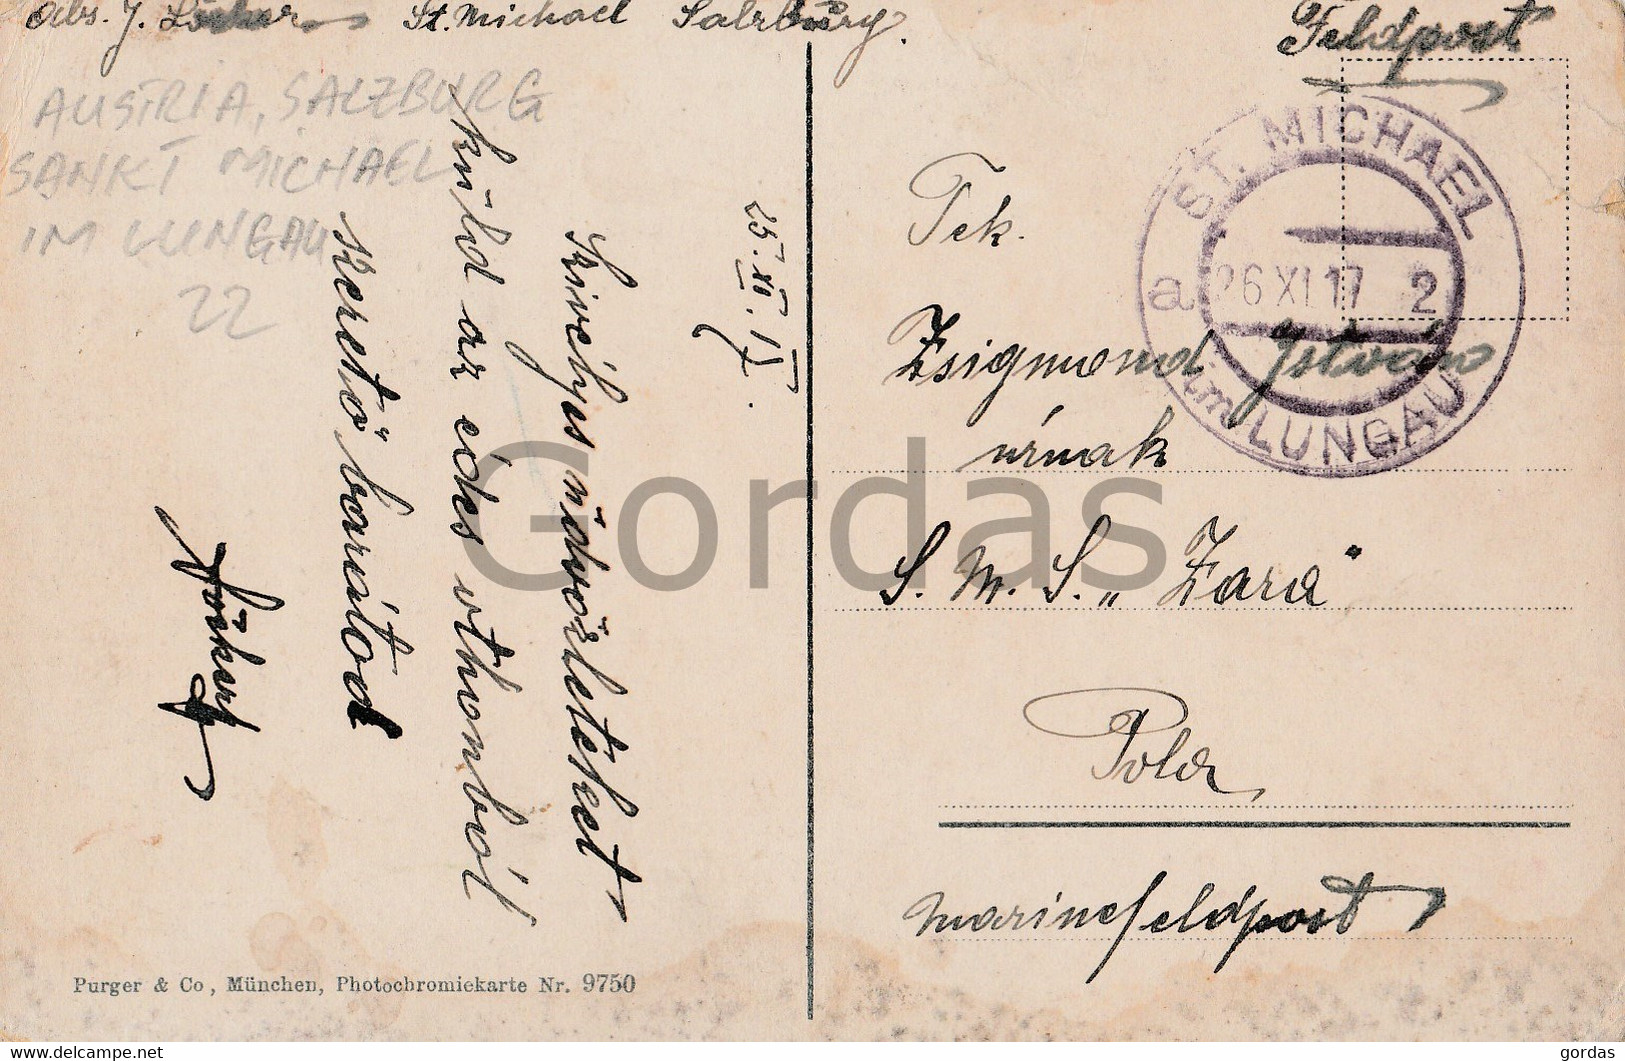 Abs. J. St. Michael Salzburg.
Feldpost
AUSTRIA, SALZBURG
SANKT MICHAEL
IM LUNGAU
22
ST. MICHAEL
a 26 XI 17 2
im LUNGAU
25. XI. 17.
Szivélyes üdvözletest
küld az édes otthonból
szerető barátod
Tek.
Zsigmond István
úrnak
S. M. S. „Zara"
Pola
Marinefeldpost
Purger & Co, München, Photochromiekarte Nr. 9750
Gordas
www.delcampe.net
gordas